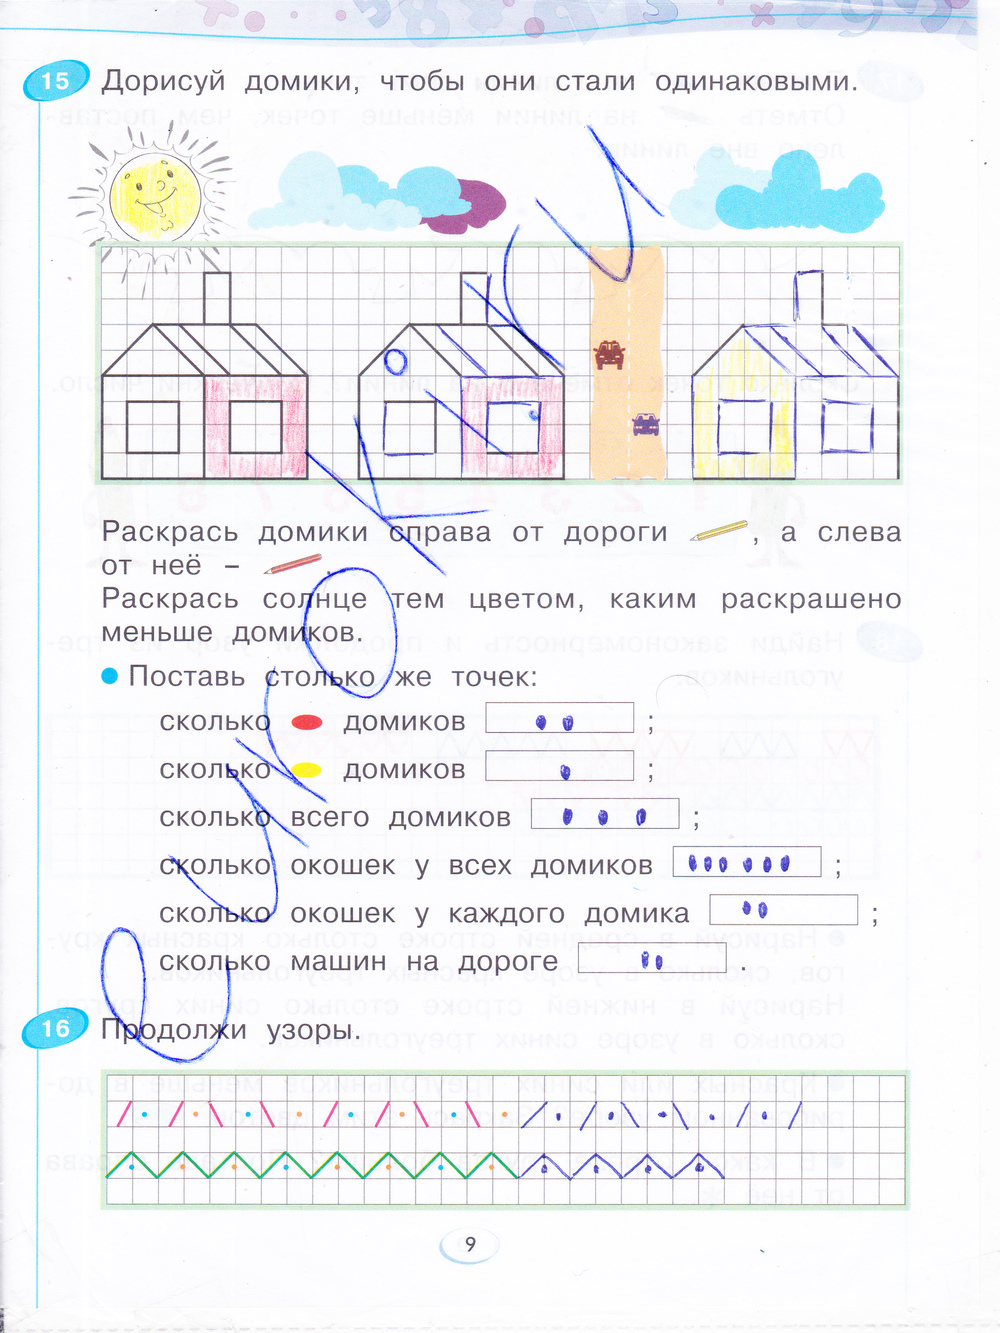 15 Дорисуй домики, чтобы они стали одинаковыми.
Раскрась домики справа от дороги , а слева
от неё – .
Раскрась солнце тем цветом, каким раскрашено
меньше домиков.
Поставь столько же точек:
сколько домиков ;
сколько домиков ;
сколько всего домиков ;
сколько окошек у всех домиков ;
сколько окошек у каждого домика ;
сколько машин на дороге .
16 Продолжи узоры.
9